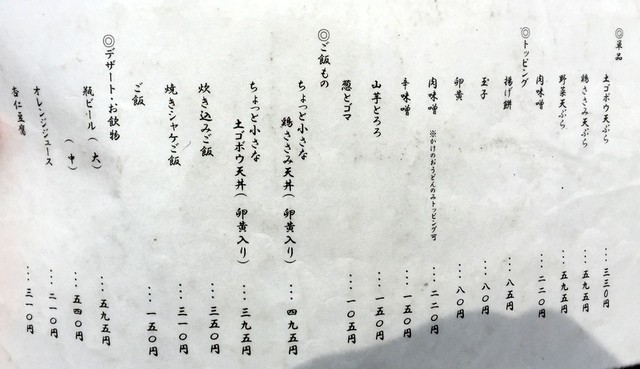 ◎単品
土ゴボウ天ぷら ・・・三三〇円
鶏ささみ天ぷら ・・・五九五円
野菜天ぷら ・・・五九五円
肉味噌 ・・・二二〇円
◎トッピング
揚げ餅 ・・・八五円
玉子 ・・・八〇円
卵黄 ・・・八〇円
肉味噌 ※かけのおうどんのみトッピング可 ・・・二二〇円
辛味噌 ・・・一五〇円
山芋とろろ ・・・一五〇円
葱とゴマ ・・・一〇五円
◎ご飯もの
ちょっと小さな
鶏ささみ天丼(卵黄入り) ・・・四九五円
ちょっと小さな
土ゴボウ天丼(卵黄入り) ・・・三九五円
炊き込みご飯 ・・・三五〇円
焼きシャケご飯 ・・・三一〇円
ご飯 ・・・一五〇円
◎デザート・お飲物
瓶ビール(大) ・・・五九五円
(中) ・・・五四〇円
オレンジジュース ・・・二一〇円
杏仁豆腐 ・・・三一〇円